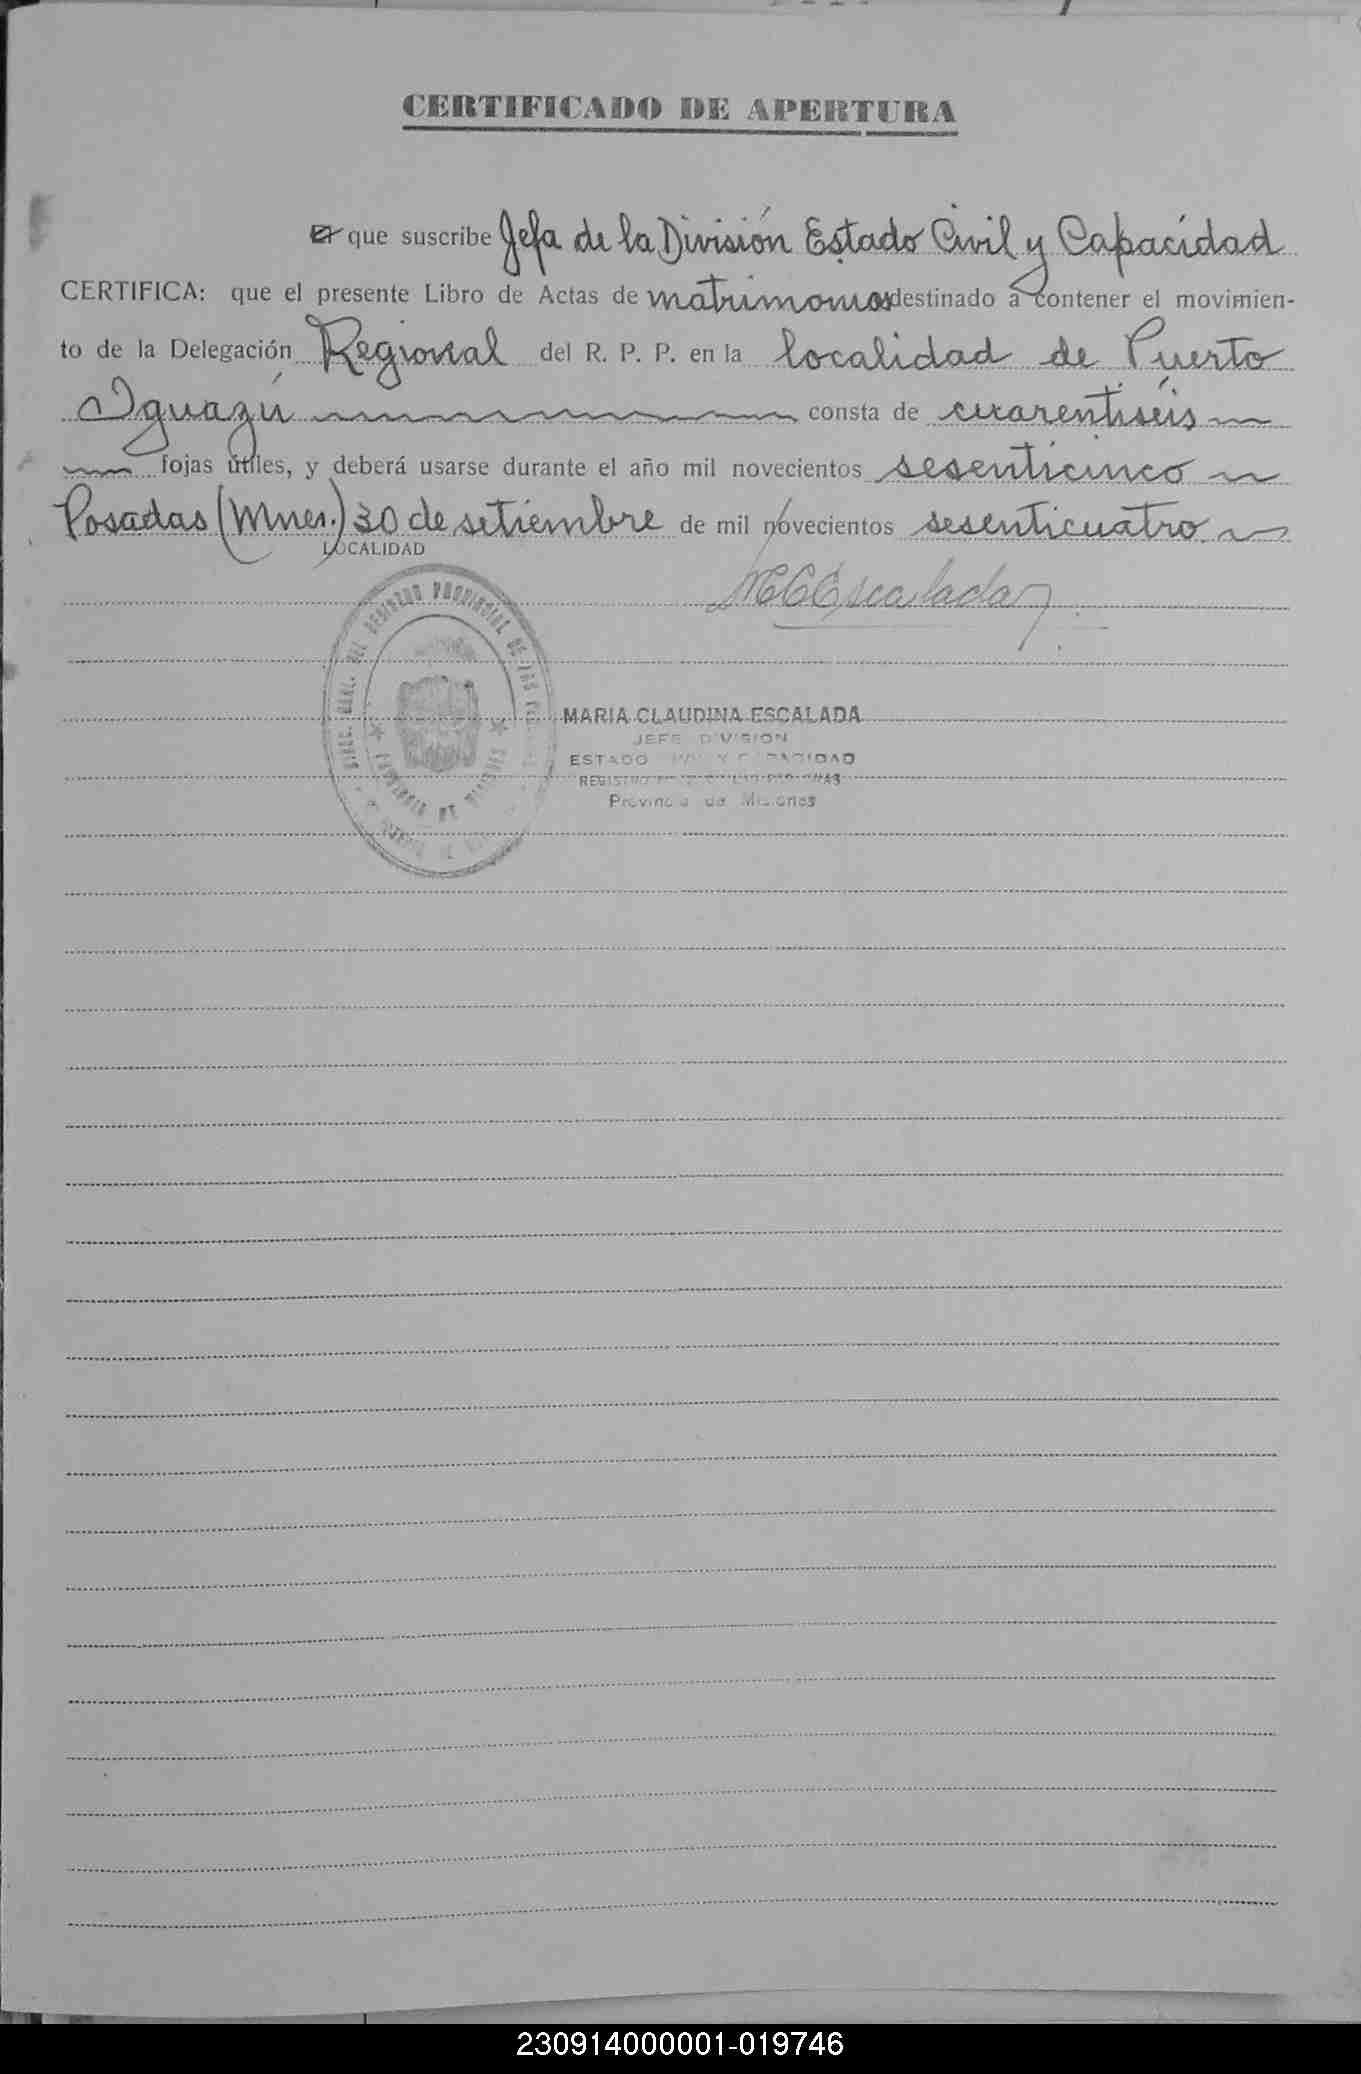 CERTIFICADO DE APERTURA
El que suscribe Jefa de la División Estado Civil y Capacidad
CERTIFICA: que el presente Libro de Actas de matrimonios destinado a contener el movimien-
to de la Delegación Regional del R. P. P. en la localidad de Puerto
Iguazú consta de cuarentiséis
fojas útiles, y deberá usarse durante el año mil novecientos sesenticinco
Posadas (Mnes.) 30 de setiembre de mil novecientos sesenticuatro
LOCALIDAD
MCEscalada
DIREC. GRAL. DEL REGISTRO PROVINCIAL DE LAS
PROVINCIA DE MISIONES
MARIA CLAUDINA ESCALADA
JEFE DIVISION
ESTADO CIVIL Y CAPACIDAD
REGISTRO PERSONAS
Provincia de Misiones
230914000001-019746